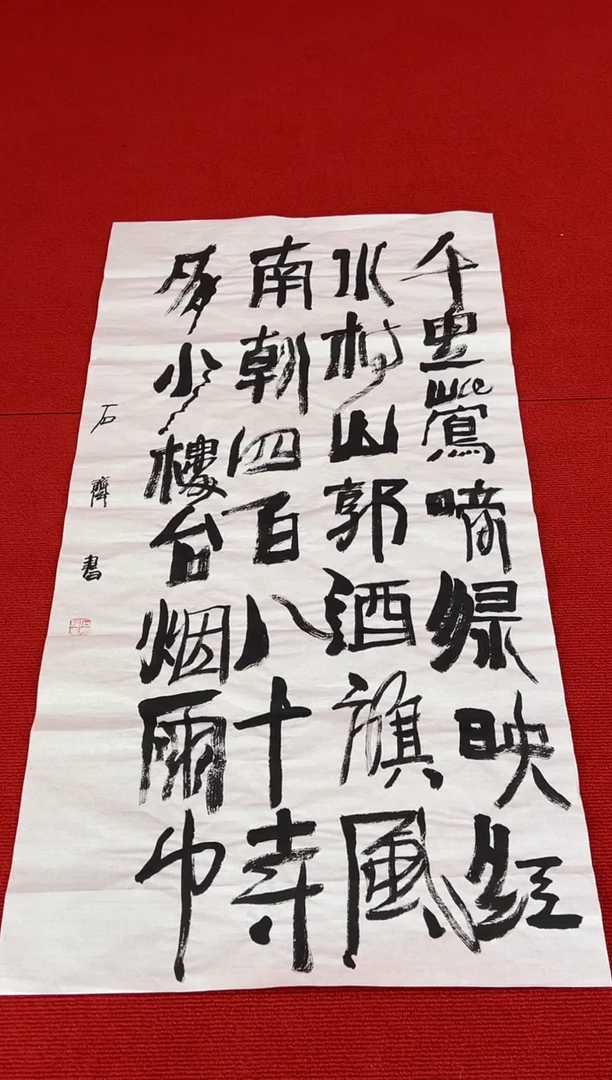 千里鶯啼绿映红
水村山郭酒旗風
南朝四百八十寺
多少樓台烟雨中
石齊書